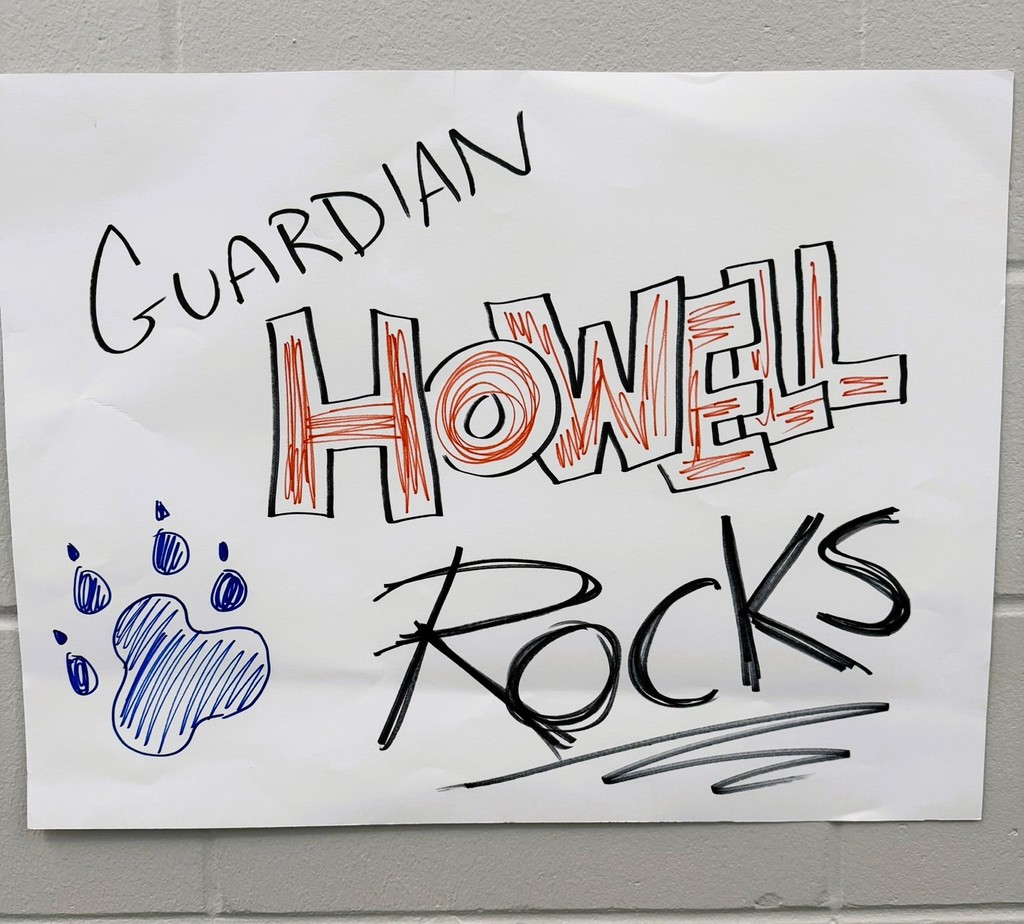 GUARDIAN
HOWELL
ROCKS